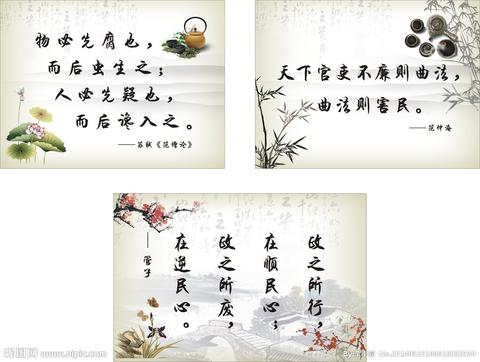 物必先腐也，
而后虫生之；
人必先疑也，
而后谗入之。
——苏轼《范增论》
天下官吏不廉则曲法，
曲法则害民。
——范仲淹
政之所行，
在顺民心；
政之所废，
在逆民心。
——管子
昵图网
www.nipic.com